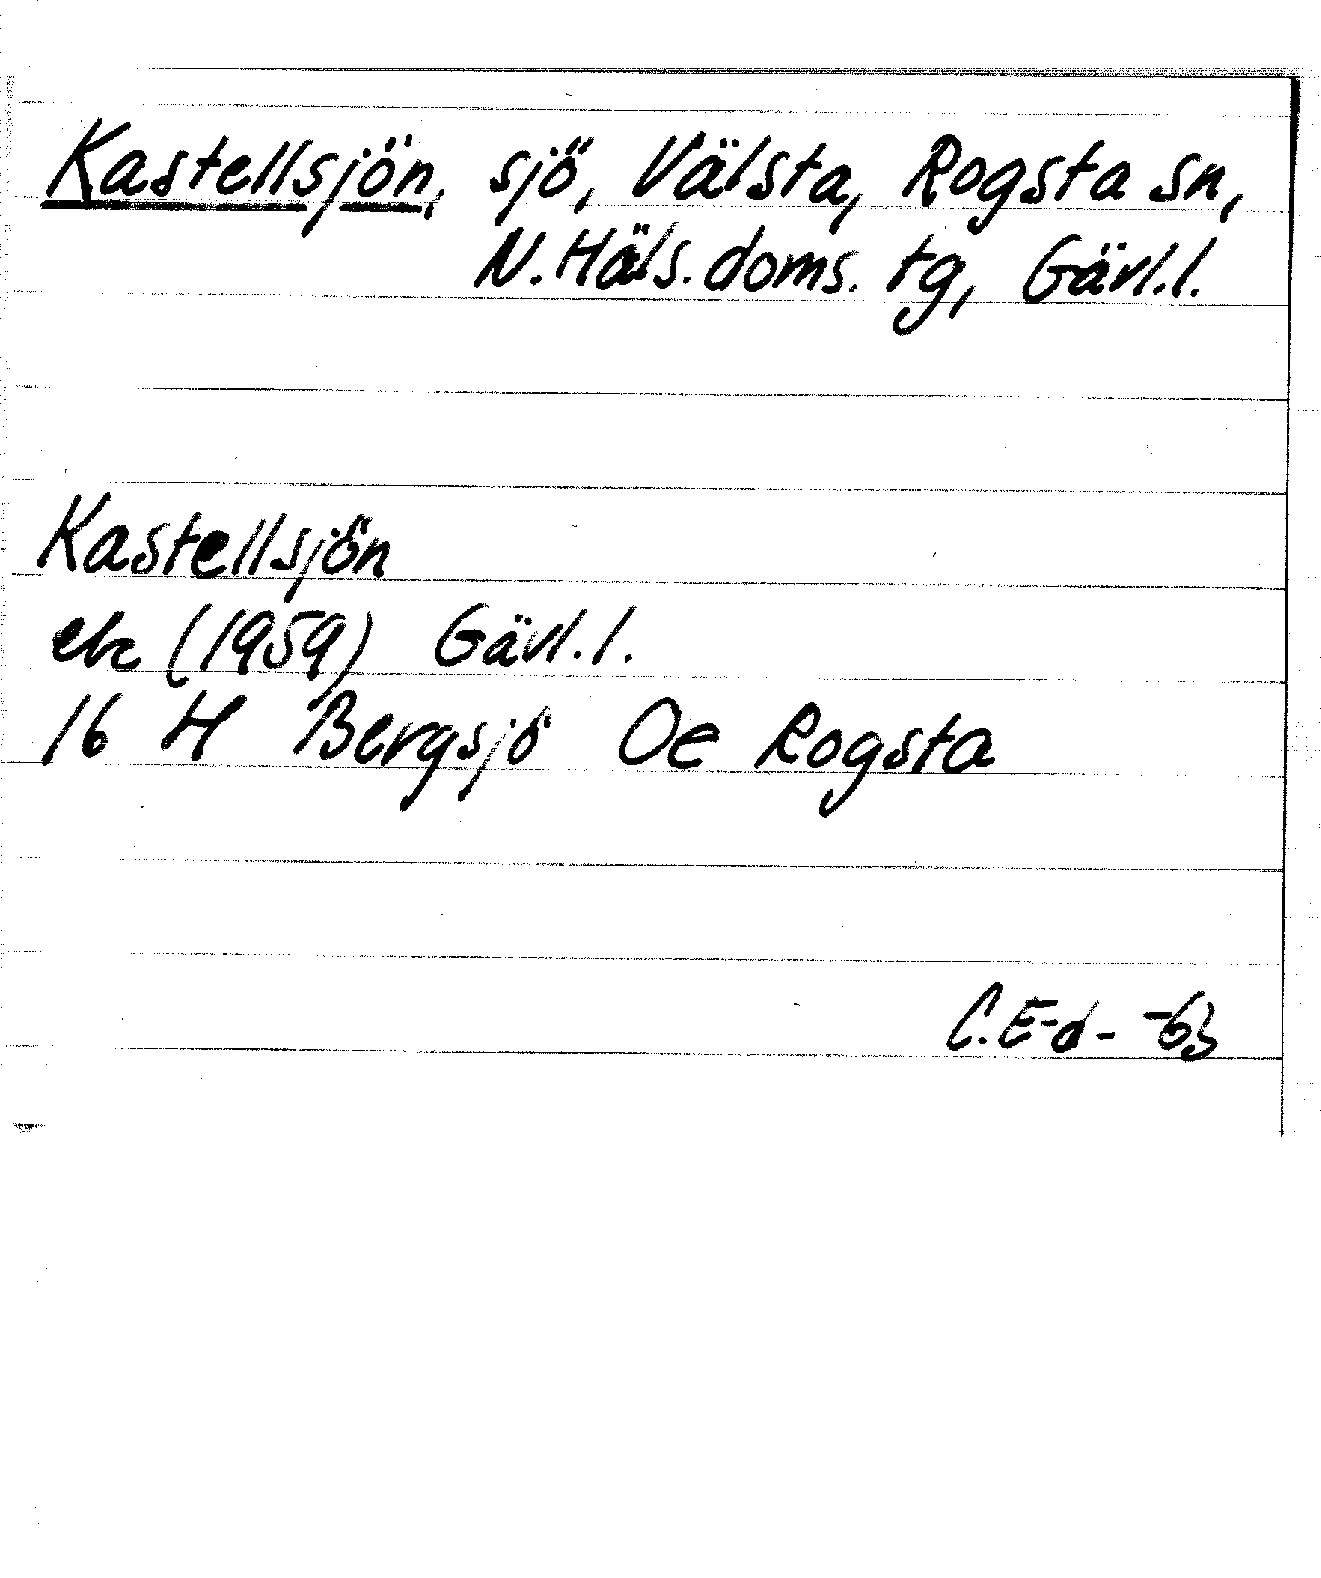 Kastellsjön, sjö, Välsta, Rogsta sn,
N. Häls. doms. tg, Gävl.l.
Kastellsjön
ek (1959) Gävl.l.
16 H Bergsjö Oe Rogsta
C. E-d- -63